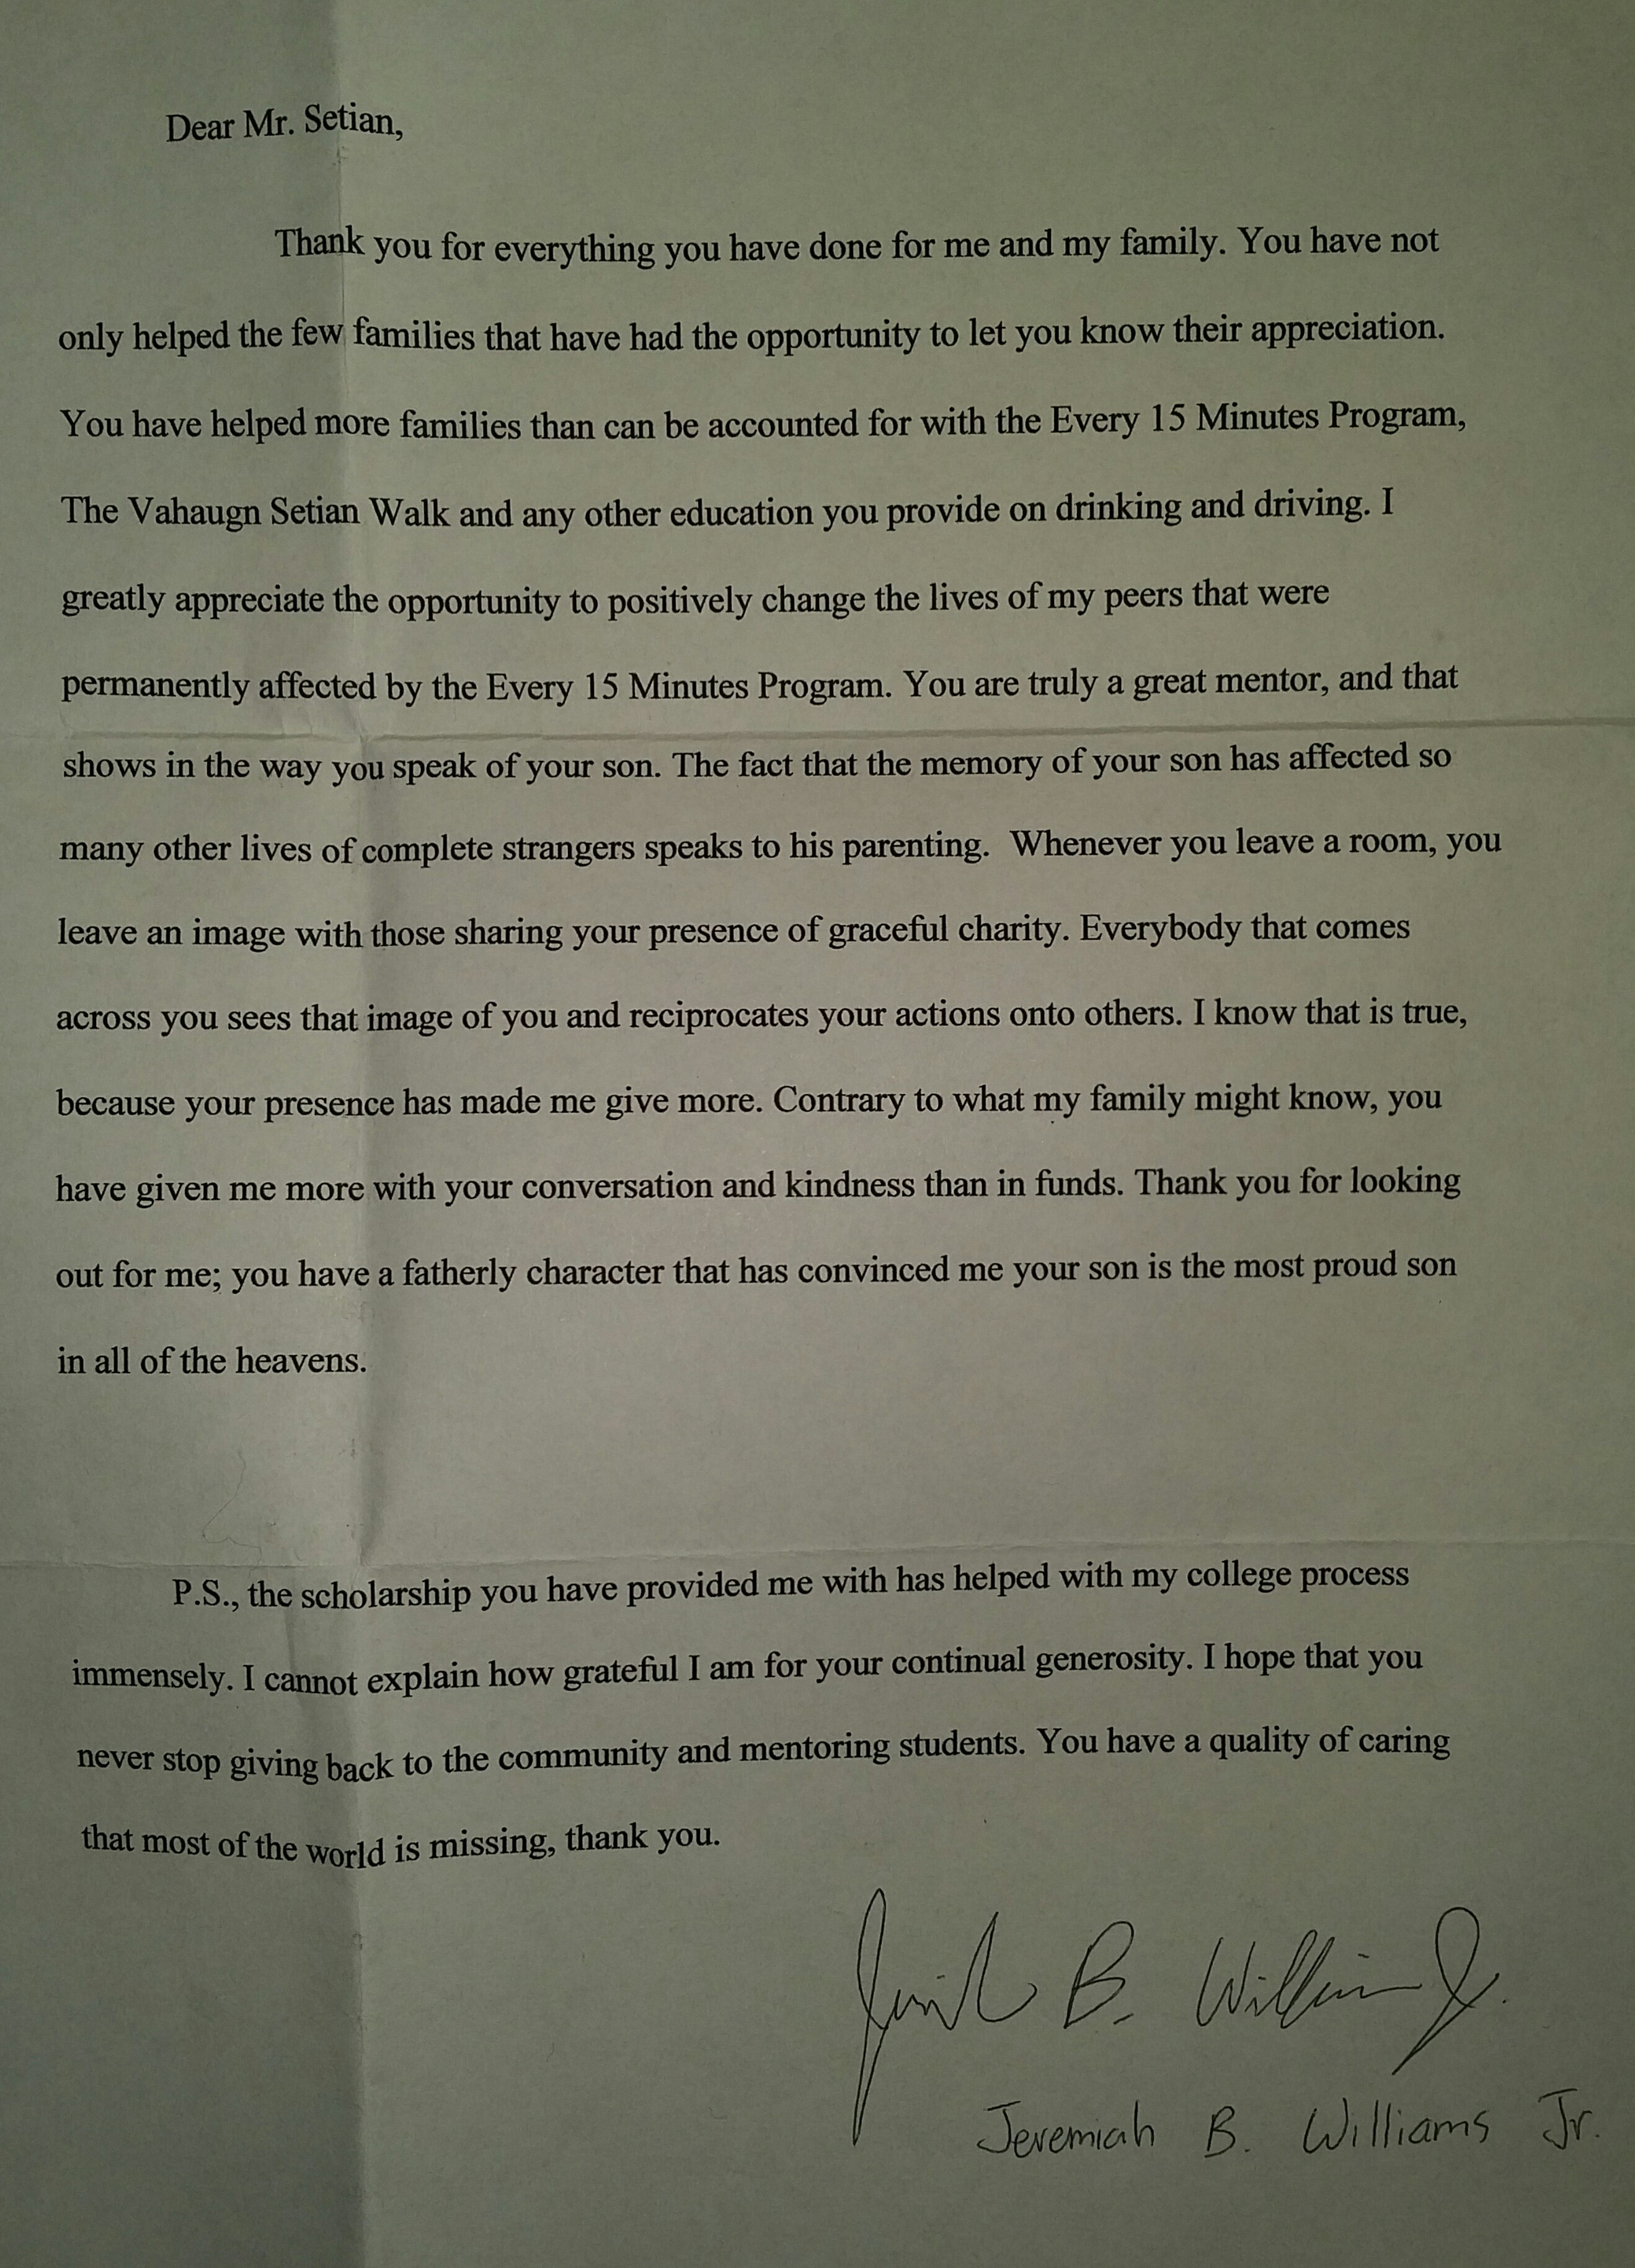 Dear Mr. Setian,
Thank you for everything you have done for me and my family. You have not
only helped the few families that have had the opportunity to let you know their appreciation.
You have helped more families than can be accounted for with the Every 15 Minutes Program,
The Vahaugn Setian Walk and any other education you provide on drinking and driving. I
greatly appreciate the opportunity to positively change the lives of my peers that were
permanently affected by the Every 15 Minutes Program. You are truly a great mentor, and that
shows in the way you speak of your son. The fact that the memory of your son has affected so
many other lives of complete strangers speaks to his parenting.  Whenever you leave a room, you
leave an image with those sharing your presence of graceful charity. Everybody that comes
across you sees that image of you and reciprocates your actions onto others. I know that is true,
because your presence has made me give more. Contrary to what my family might know, you
have given me more with your conversation and kindness than in funds. Thank you for looking
out for me; you have a fatherly character that has convinced me your son is the most proud son
in all of the heavens.
P.S., the scholarship you have provided me with has helped with my college process
immensely. I cannot explain how grateful I am for your continual generosity. I hope that you
never stop giving back to the community and mentoring students. You have a quality of caring
that most of the world is missing, thank you.
Jeremiah B. Williams Jr.
Jeremiah B. Williams Jr.